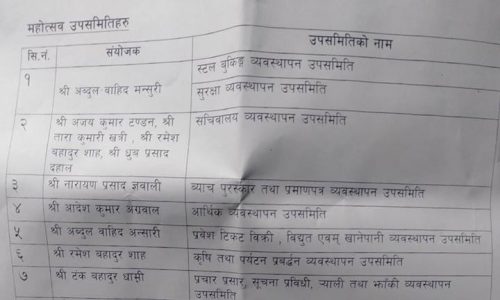 महोत्सव उपसमितिहरु
सि.नं. संयोजक उपसमितिको नाम
१ श्री अब्दुल वाहिद मन्सुरी स्टल बुकिङ्ग व्यवस्थापन उपसमिति
सुरक्षा व्यवस्थापन उपसमिति
२ श्री अजय कुमार टण्डन, श्री सचिवालय व्यवस्थापन उपसमिति
तारा कुमारी खत्री , श्री रमेश
बहादुर शाह, श्री ध्रुव प्रसाद
दहाल
३ श्री नारायण प्रसाद ज्ञवाली ब्याच पुरस्कार तथा प्रमाणपत्र व्यवस्थापन उपसमिति
४ श्री आदेश कुमार अग्रवाल आर्थिक व्यवस्थापन उपसमिति
५ श्री अब्दुल वाहिद अन्सारी प्रबेश टिकट बिक्री , बिद्युत एवम् खानेपानी व्यवस्थापन उपसमिति
६ श्री रमेश बहादुर शाह कृषि तथा पर्यटन प्रबर्द्धन व्यवस्थापन उपसमिति
७ श्री टंक बहादुर धामी प्रचार प्रसार, सूचना प्रविधी, र्‍याली तथा झाँकी व्यवस्थापन
उपसमिति